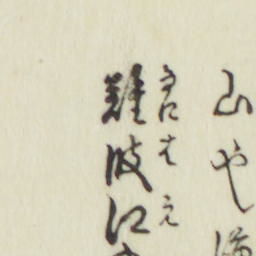 山や
難波江
なにはえ